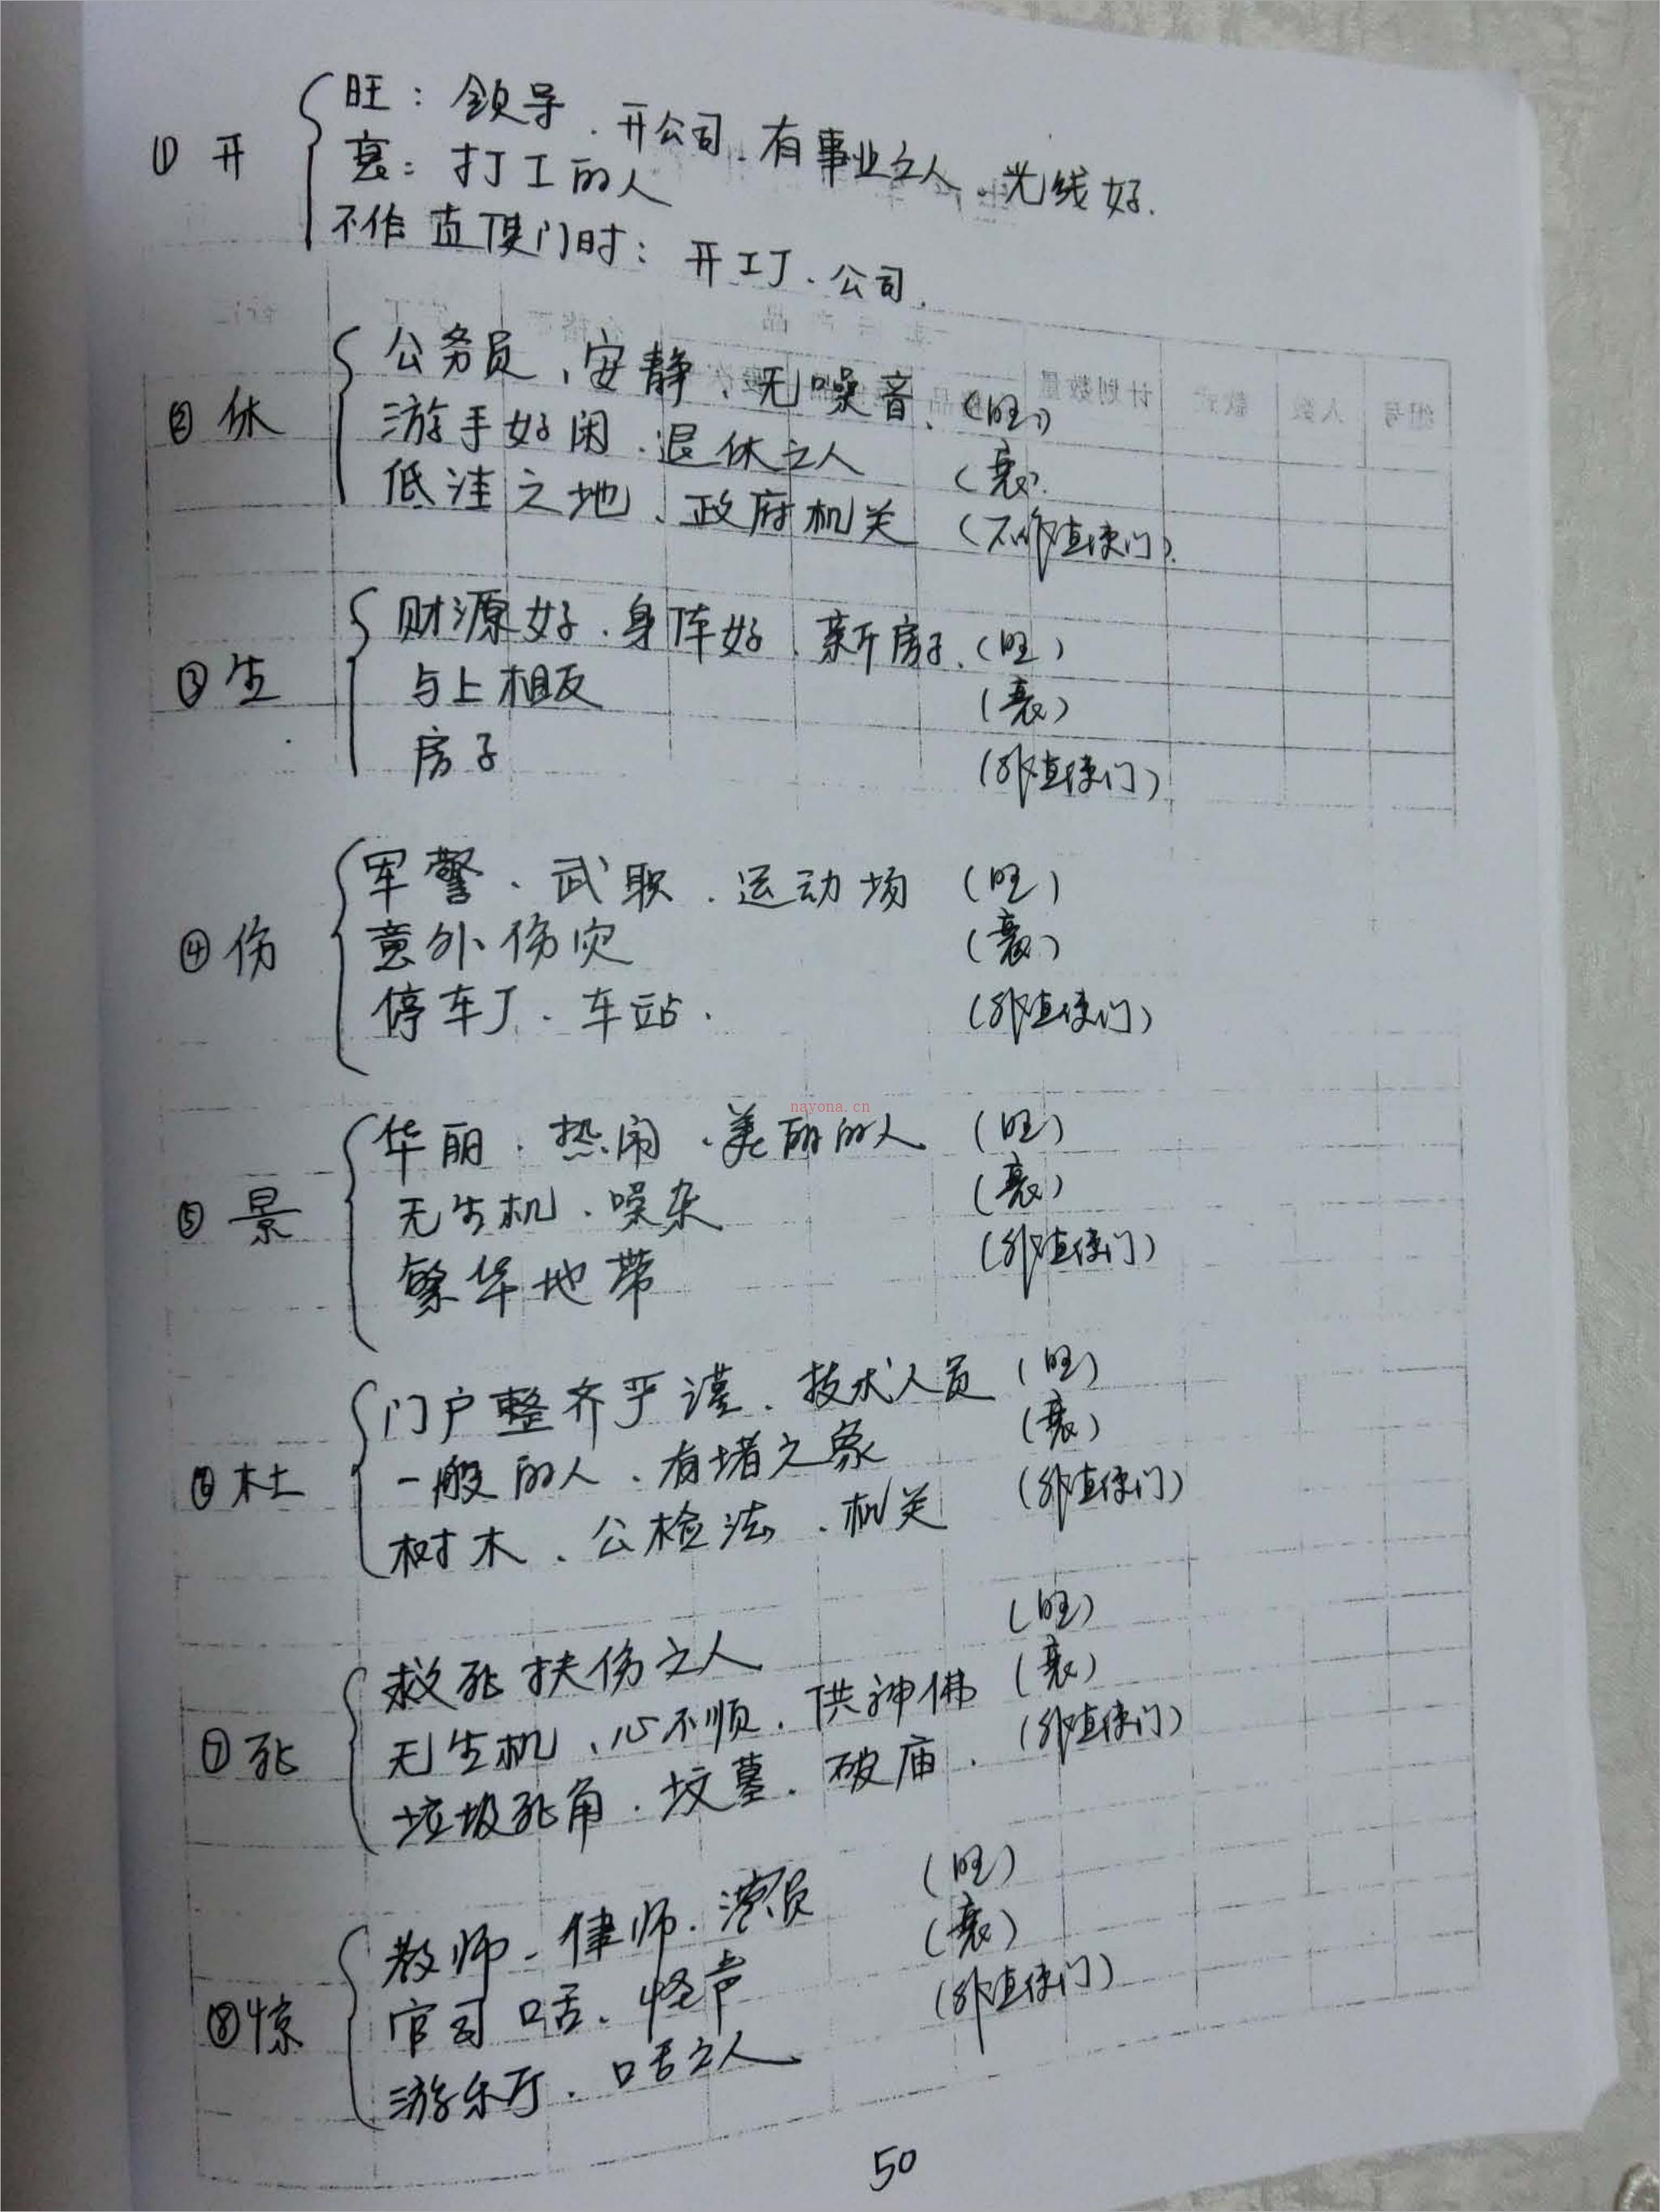 ① 开
旺：领导、开公司、有事业之人、光线好.
衰：打工的人
不作直使门时：开工厂、公司.
② 休
公务员、安静、无噪音、(旺)
游手好闲、退休之人 (衰)
低洼之地、政府机关 (不作直使门)
③ 生
财源好、身体好、新房子、(旺)
与上相反 (衰)
房子 (非直使门)
④ 伤
军警、武职、运动场 (旺)
意外伤灾 (衰)
停车厂、车站. (非直使门)
nayona.cn
⑤ 景
华丽、热闹、美丽的人 (旺)
无生机、噪杂 (衰)
繁华地带 (非直使门)
⑥ 杜
门户整齐严谨、技术人员 (旺)
一般的人、有堵之象 (衰)
树木、公检法、机关 (非直使门)
⑦ 死
救死扶伤之人 (旺)
无生机、心不顺、供神佛 (衰)
垃圾死角、坟墓、破庙. (非直使门)
⑧ 惊
教师、律师、演员 (旺)
官司口舌、怪声 (衰)
游乐厅、口舌之人 (非直使门)
50
组号 人数 款式 计划数量